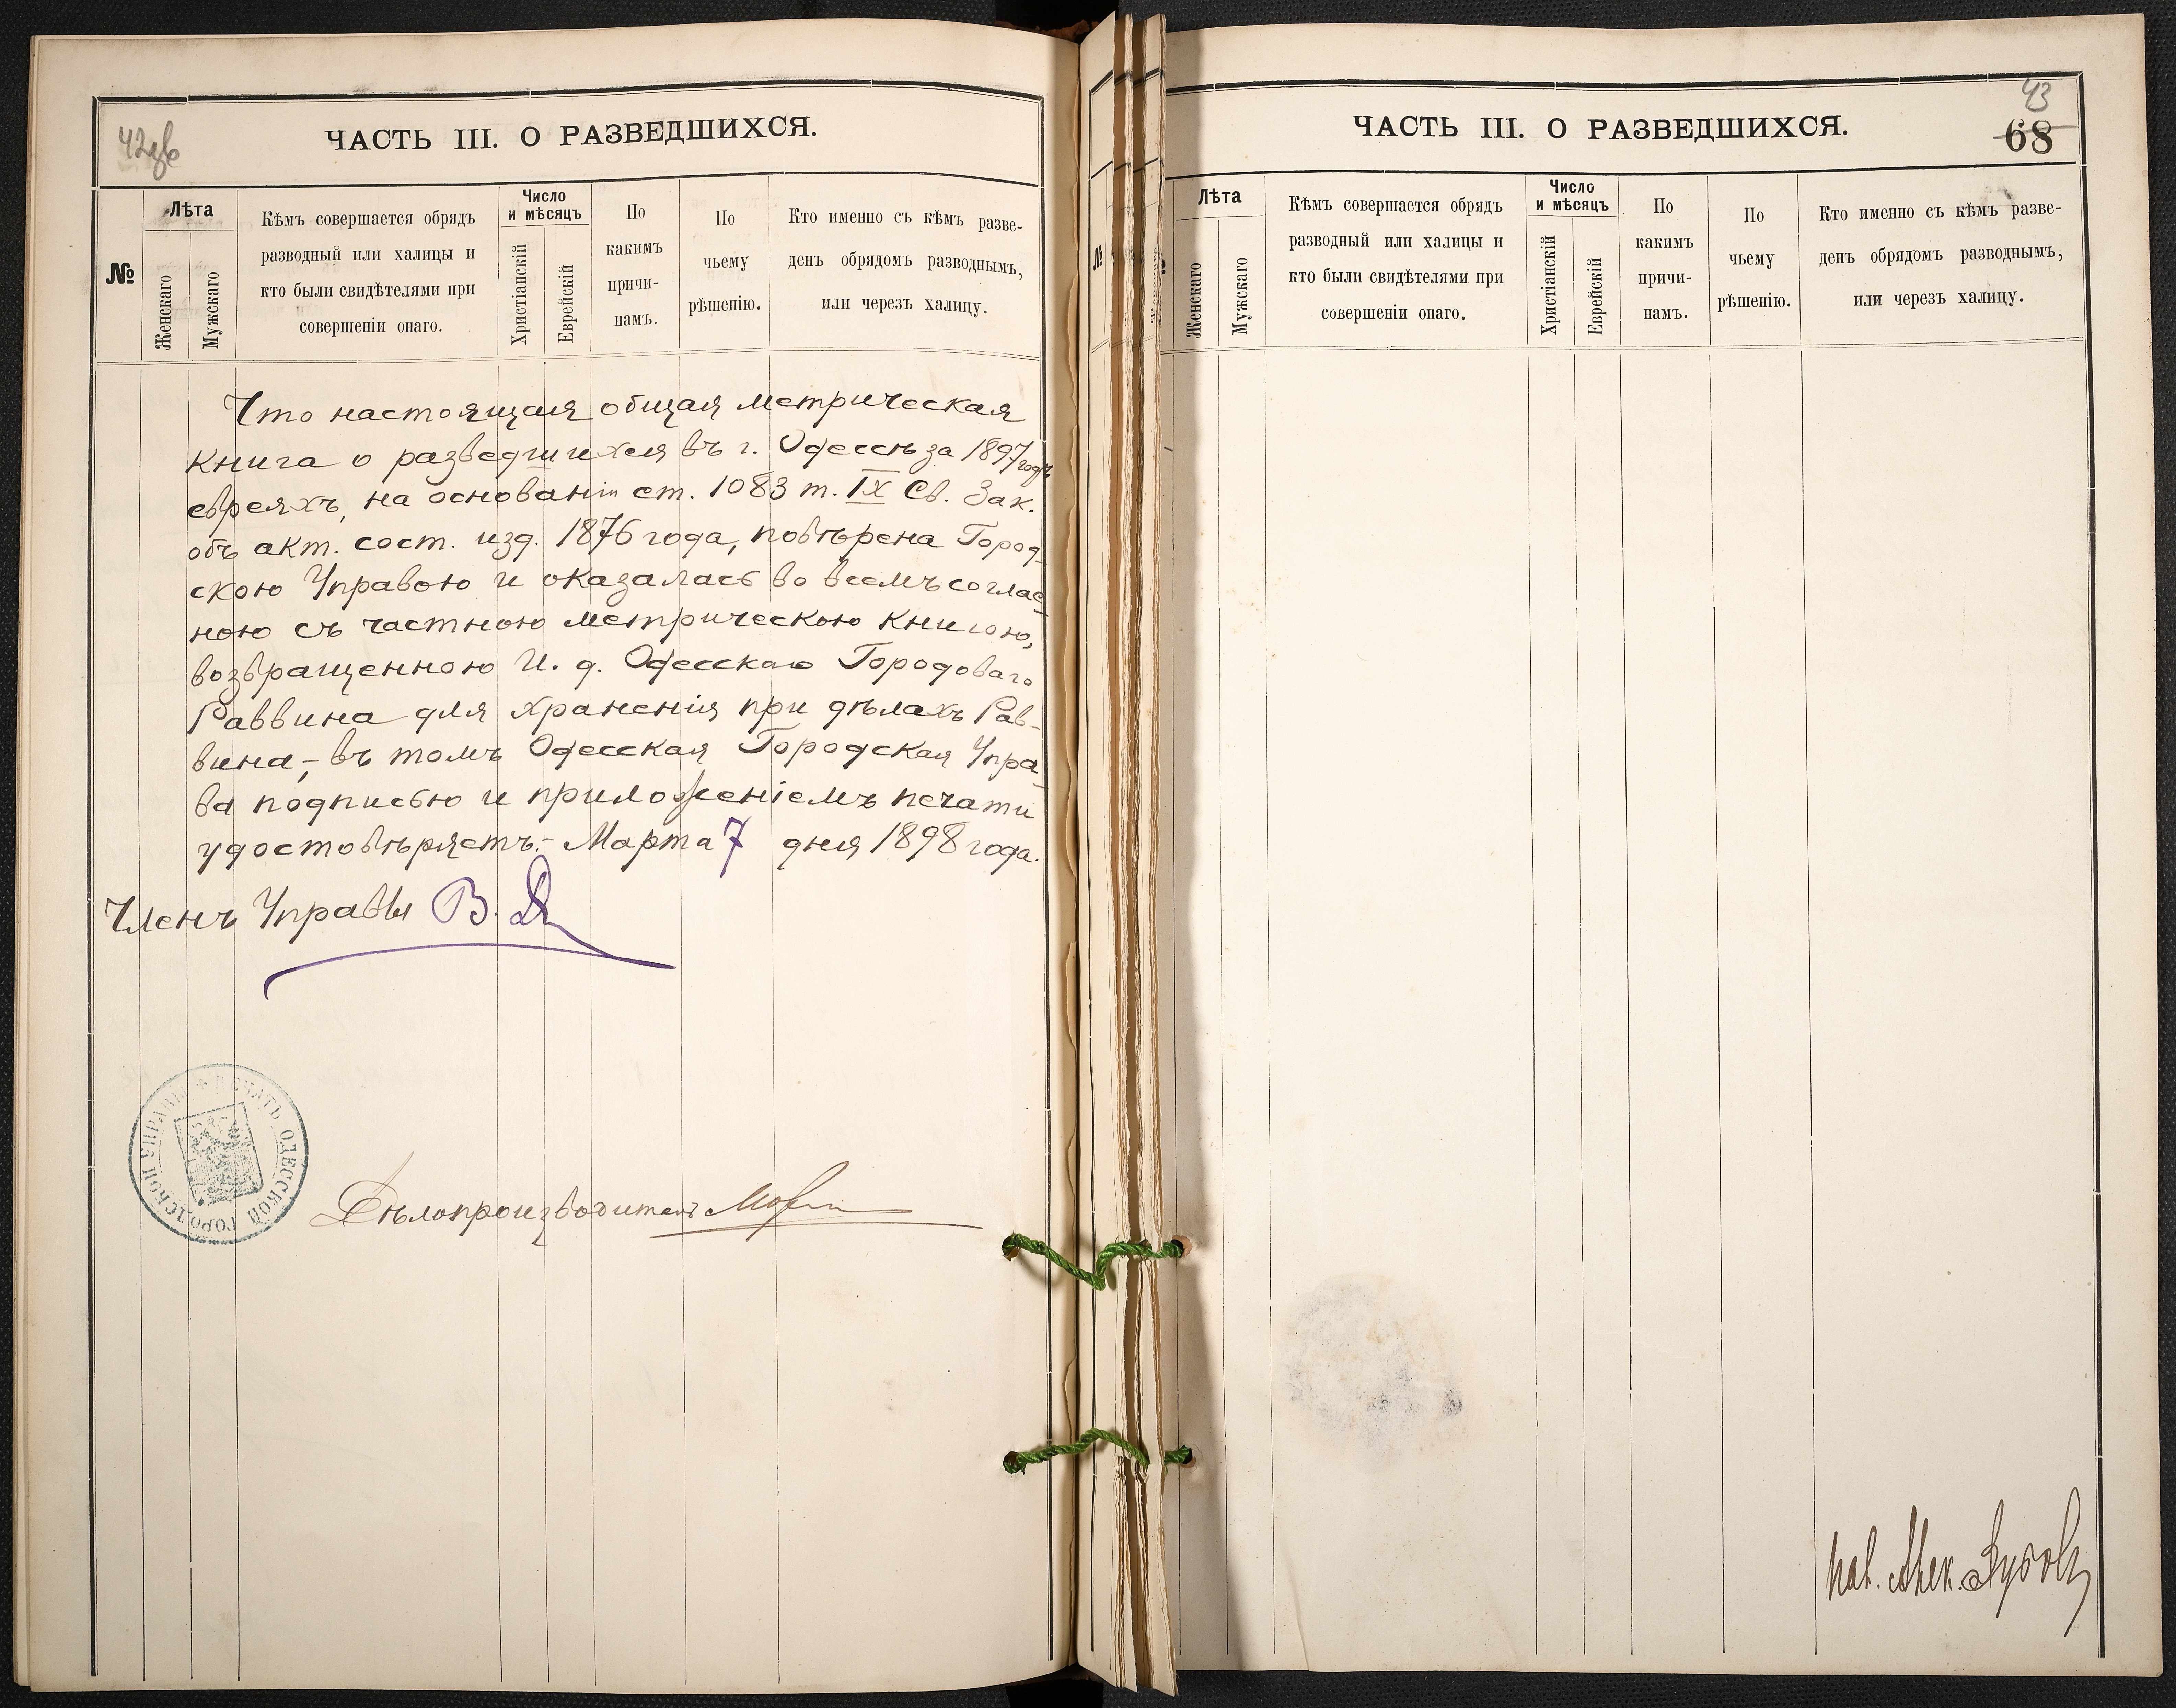 42об
ЧАСТЬ III. О РАЗВЕДШИХСЯ.
№
Лѣта
Женскаго
Мужскаго
Кѣмъ совершается обрядъ
разводный или халицы и
кто были свидѣтелями при
совершеніи онаго.
Число
и мѣсяцъ
Христіанскій
Еврейскій
По
какимъ
причи-
намъ.
По
чьему
рѣшенію.
Кто именно съ кѣмъ разве-
денъ обрядомъ разводнымъ,
или черезъ халицу.
Что настоящая общая метрическая
книга о разведшихся въ г. Одессѣ за 1897 годъ
евреяхъ, на основаніи ст. 1083 т. IX Св. Зак.
объ акт. сост. изд. 1876 года, повѣрена Город-
скою Управою и оказалась во всемъ соглас-
ною съ частною метрическою книгою,
возвращенною И. д. Одесскаго Городоваго
Раввина для храненія при дѣлахъ Рав-
вина,- въ томъ Одесская Городская Упра-
ва подписью и приложеніемъ печати
удостовѣряетъ.- Марта 7 дня 1898 года.
Членъ Управы В.
ПЕЧАТЬ ОДЕССКОЙ ГОРОДСКОЙ УПРАВЫ
Дѣлопроизводитель
43
ЧАСТЬ III. О РАЗВЕДШИХСЯ.
68
№
Лѣта
Женскаго
Мужскаго
Кѣмъ совершается обрядъ
разводный или халицы и
кто были свидѣтелями при
совершеніи онаго.
Число
и мѣсяцъ
Христіанскій
Еврейскій
По
какимъ
причи-
намъ.
По
чьему
рѣшенію.
Кто именно съ кѣмъ разве-
денъ обрядомъ разводнымъ,
или черезъ халицу.